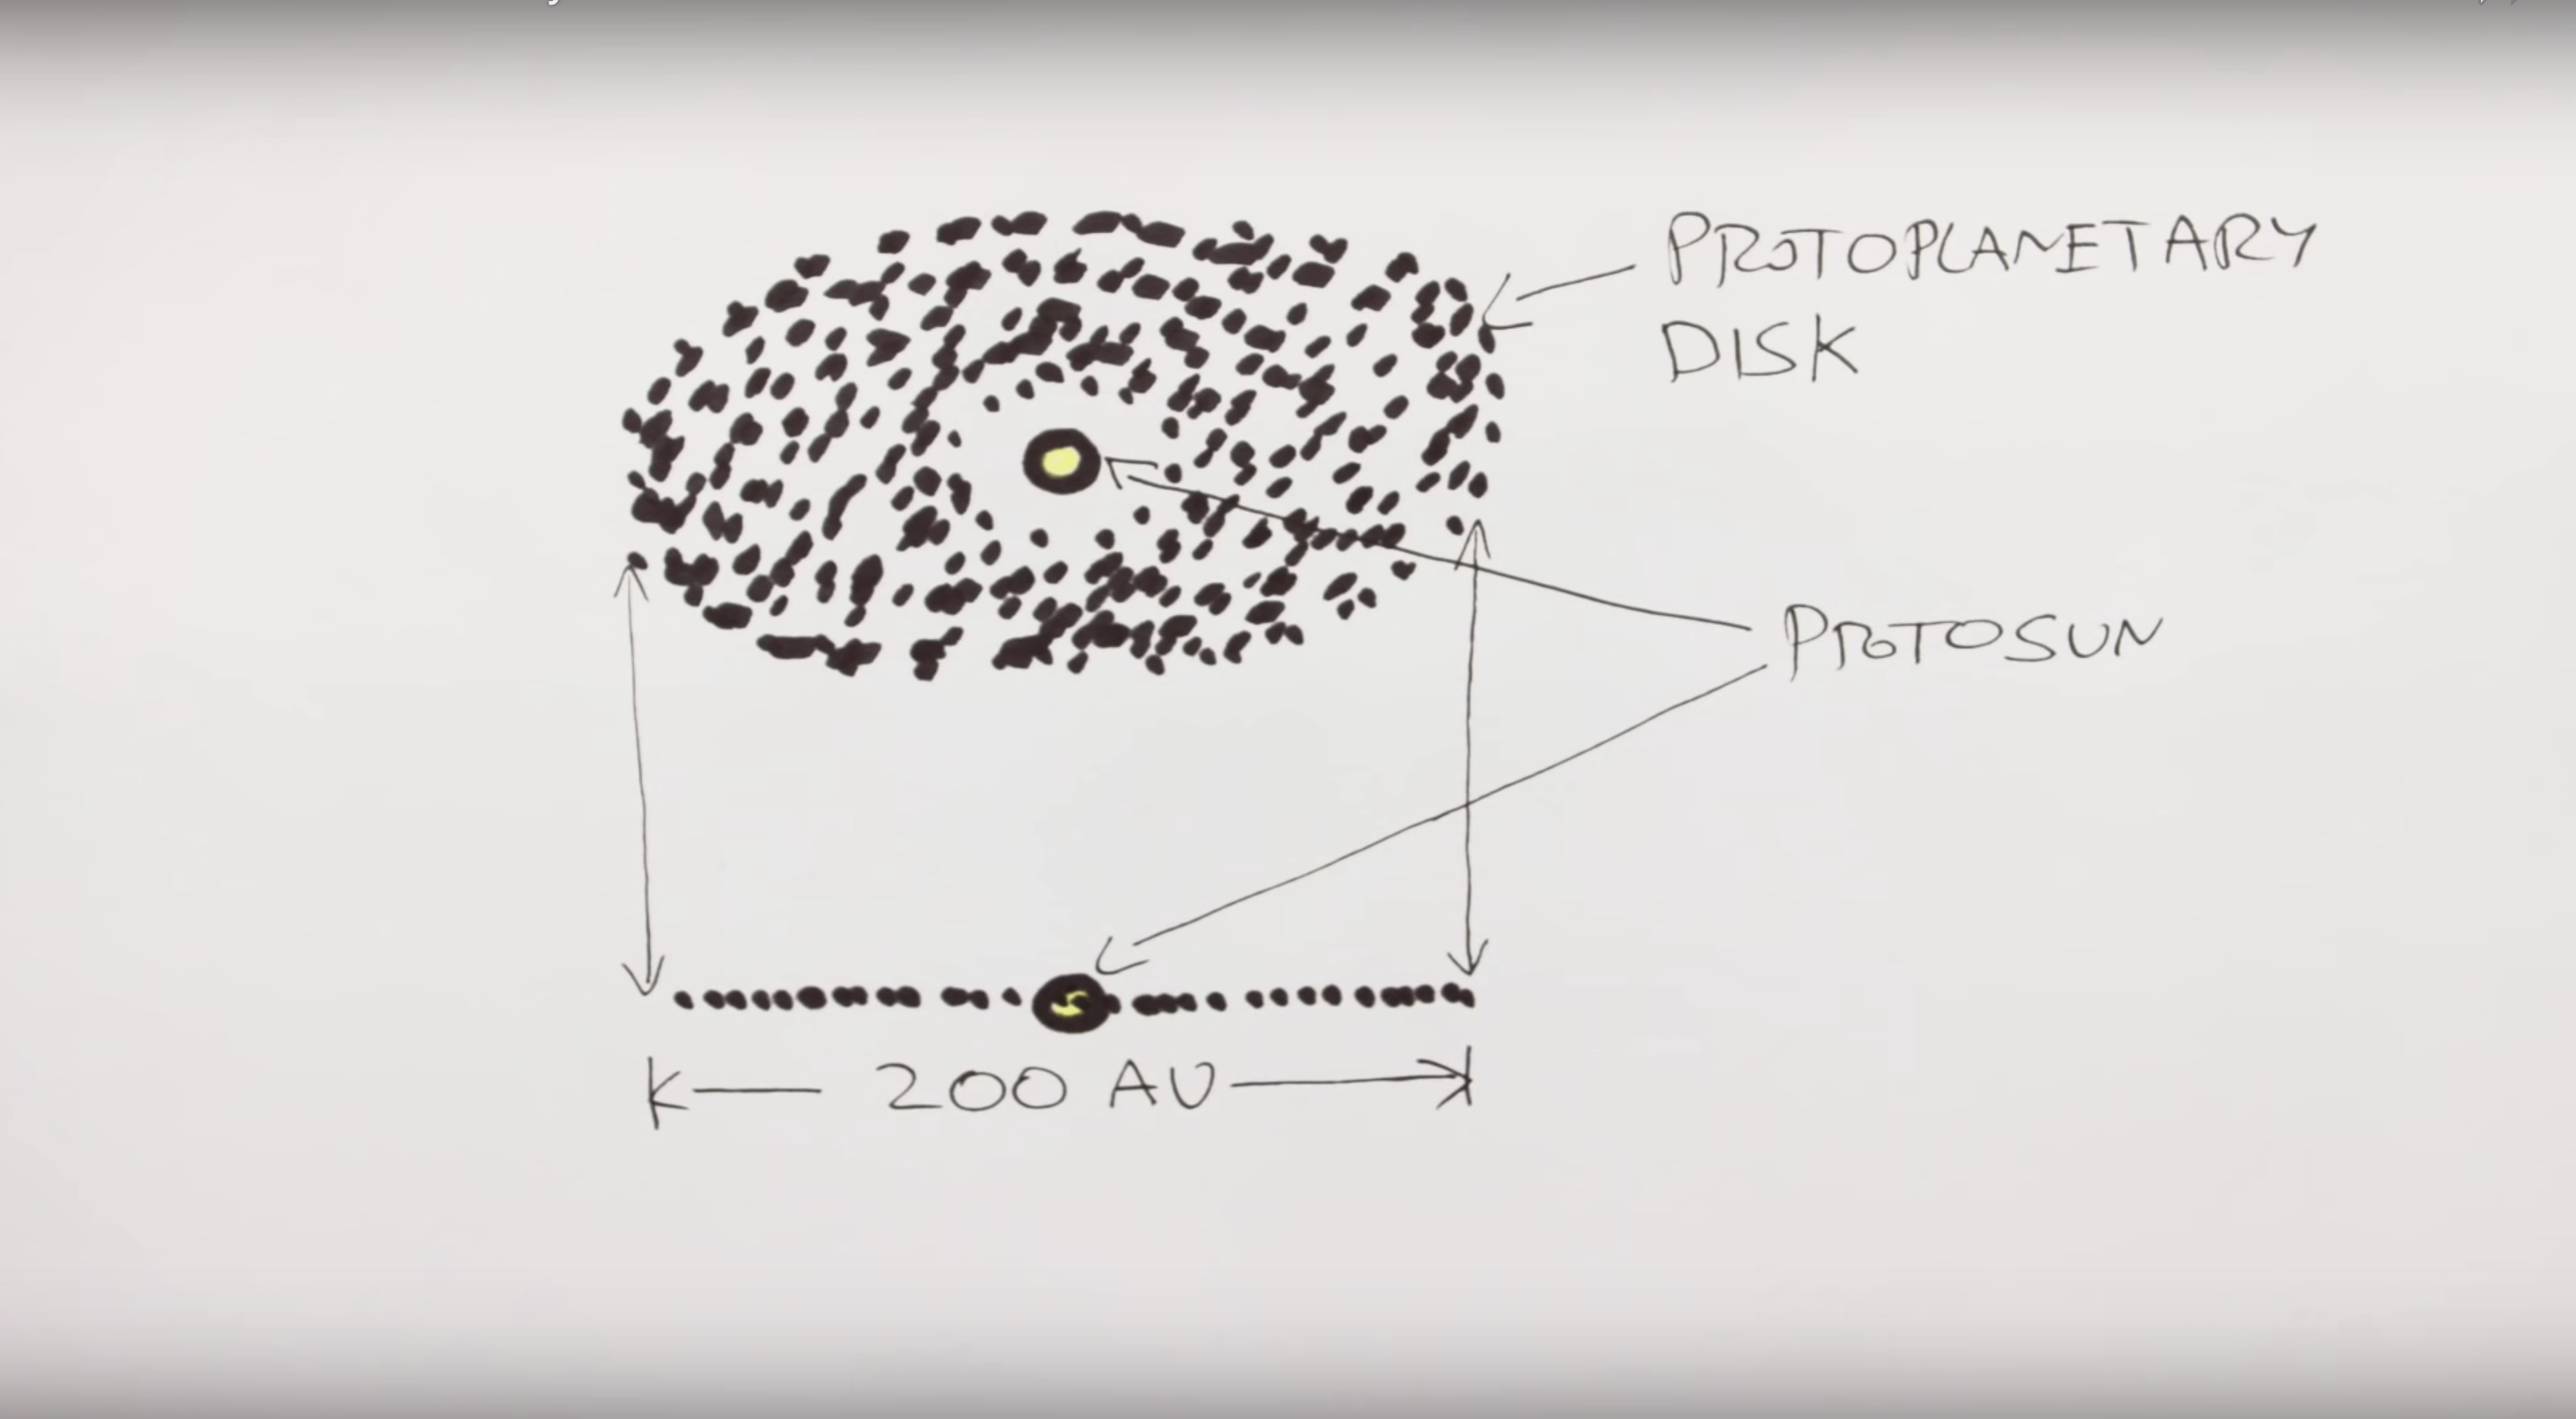 PROTOPLANETARY
DISK
PROTOSUN
200 AU